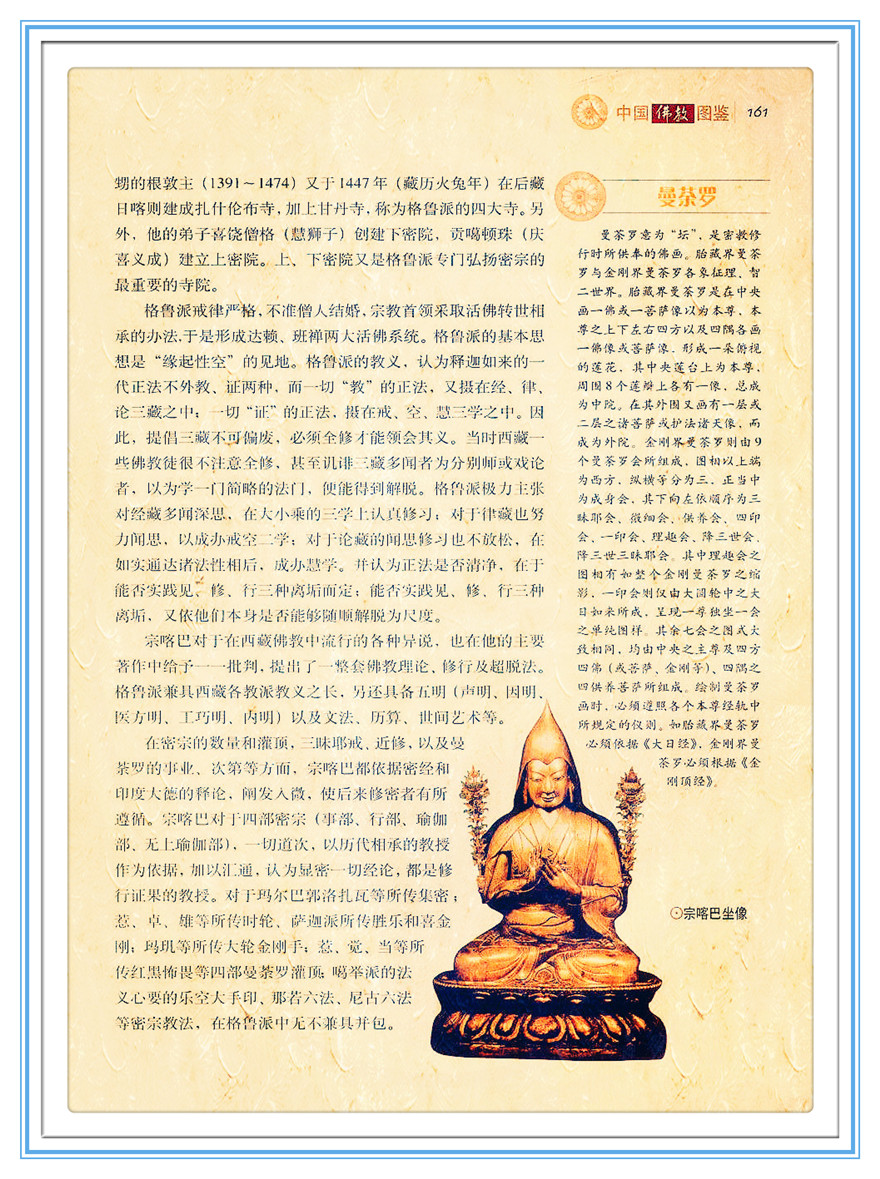 中国佛教图鉴 161
甥的根敦主（1391～1474）又于1447年（藏历火兔年）在后藏
日喀则建成扎什伦布寺，加上甘丹寺，称为格鲁派的四大寺。另
外，他的弟子喜饶僧格（慧狮子）创建下密院，贡噶顿珠（庆
喜义成）建立上密院。上、下密院又是格鲁派专门弘扬密宗的
最重要的寺院。
格鲁派戒律严格，不准僧人结婚，宗教首领采取活佛转世相
承的办法，于是形成达赖、班禅两大活佛系统。格鲁派的基本思
想是“缘起性空”的见地。格鲁派的教义，认为释迦如来的一
代正法不外教、证两种，而一切“教”的正法，又摄在经、律、
论三藏之中；一切“证”的正法，摄在戒、空、慧三学之中。因
此，提倡三藏不可偏废，必须全修才能领会其义。当时西藏一
些佛教徒很不注意全修，甚至讥诽三藏多闻者为分别师或戏论
者，以为学一门简略的法门，便能得到解脱。格鲁派极力主张
对经藏多闻深思，在大小乘的三学上认真修习；对于律藏也努
力闻思，以成办戒空二学；对于论藏的闻思修习也不放松，在
如实通达诸法性相后，成办慧学。并认为正法是否清净，在于
能否实践见、修、行三种离垢而定；能否实践见、修、行三种
离垢，又依他们本身是否能够随顺解脱为尺度。
宗喀巴对于在西藏佛教中流行的各种异说，也在他的主要
著作中给予一一批判，提出了一整套佛教理论、修行及超脱法。
格鲁派兼具西藏各教派教义之长，另还具备五明（声明、因明、
医方明、工巧明、内明）以及文法、历算、世间艺术等。
在密宗的数量和灌顶，三昧耶戒、近修，以及曼
荼罗的事业、次第等方面，宗喀巴都依据密经和
印度大德的释论，阐发入微，使后来修密者有所
遵循。宗喀巴对于四部密宗（事部、行部、瑜伽
部、无上瑜伽部），一切道次，以历代相承的教授
作为依据，加以汇通，认为显密一切经论，都是修
行证果的教授。对于玛尔巴郭洛扎瓦等所传集密；
惹、卓、雄等所传时轮、萨迦派所传胜乐和喜金
刚；玛玑等所传大轮金刚手；惹、觉、当等所
传红黑怖畏等四部曼荼罗灌顶；噶举派的法
义心要的乐空大手印、那若六法、尼古六法
等密宗教法，在格鲁派中无不兼具并包。
曼荼罗
曼荼罗意为“坛”，是密教修
行时所供奉的佛画。胎藏界曼荼
罗与金刚界曼荼罗各象征理、智
二世界。胎藏界曼荼罗是在中央
画一佛或一菩萨像以为本尊，本
尊之上下左右四方以及四隅各画
一佛像或菩萨像，形成一朵俯视
的莲花，其中央莲台上为本尊，
周围8个莲瓣上各有一像，总成
为中院。在其外围又画有一层或
二层之诸菩萨或护法诸天像，而
成为外院。金刚界曼荼罗则由9
个曼荼罗会所组成，图相以上端
为西方，纵横等分为三，正当中
为成身会，其下向左依顺序为三
昧耶会、微细会、供养会、四印
会、一印会、理趣会、降三世会、
降三世三昧耶会。其中理趣会之
图相有如整个金刚曼荼罗之缩
影，一印会则仅由大圆轮中之大
日如来所成，呈现一尊独坐一会
之单纯图样。其余七会之图式大
致相同，均由中央之主尊及四方
四佛（或菩萨、金刚等）、四隅之
四供养菩萨所组成。绘制曼荼罗
画时，必须遵照各个本尊经轨中
所规定的仪则。如胎藏界曼荼罗
必须依据《大日经》，金刚界曼
荼罗必须根据《金
刚顶经》。
宗喀巴坐像